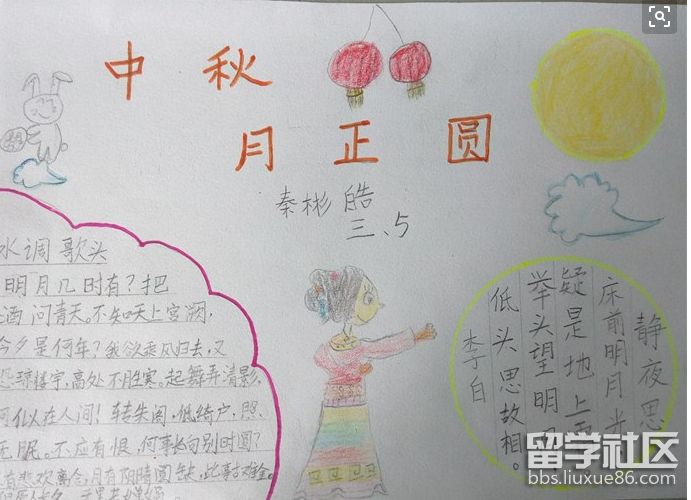 中秋
月正圆
秦彬皓
三、5
水调歌头
明月几时有?把
酒问青天。不知天上宫阙,
今夕是何年?我欲乘风归去,又
恐琼楼宇,高处不胜寒。起舞弄清影,
何似在人间!转朱阁,低绮户,照
无眠。不应有恨,何事长向别时圆?
有悲欢离合,月有阴晴圆缺,此事古难全。
静夜思
床前明月光
疑是地上霜
举头望明月
低头思故相。
李白
留学社区
bbs.liuxue86.com